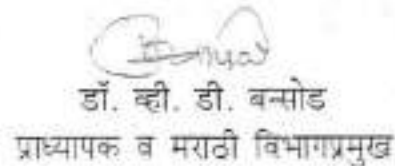 डॉ. व्ही. डी. बन्सोड
प्राध्यापक व मराठी विभागप्रमुख